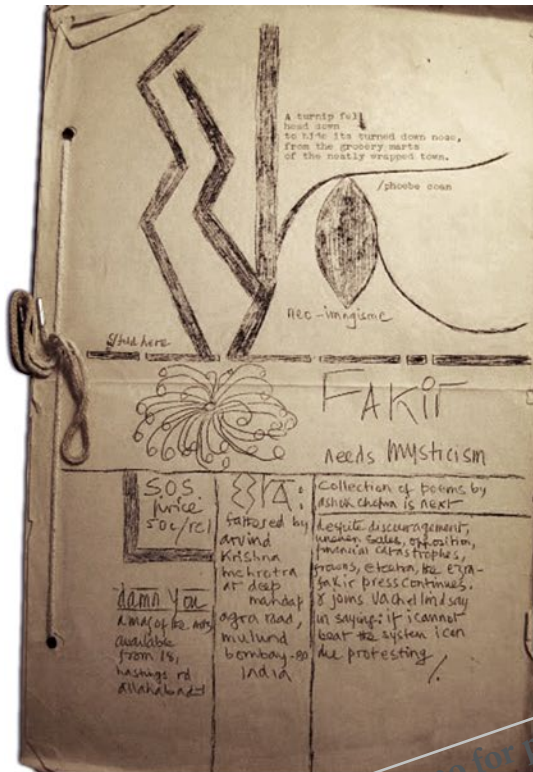 A turnip fell
head down
to hide its turned down nose,
from the grocery marts
of the neatly wrapped town.
/phoebe coan
neo-imagisme
fold here
FAKir
needs mysticism
S.O.S
price
50c/re1
damn you
a mag of the arts
available
from 18,
hastings rd
allahabad-1
fathered by
arvind
krishna
mehrotra
at deep
mandap
agra road,
mulund
bombay-80
India
Collection of poems by
ashok chopra is next
despite discouragement,
uneven sales, opposition,
financial catastrophes,
frowns, etcetra, the ezra-
fakir press continues.
& joins Vachel lindsay
in saying: if i cannot
beat the system i can
die protesting